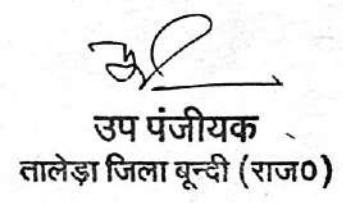 उप पंजीयक
तालेड़ा जिला बून्दी (राज0)